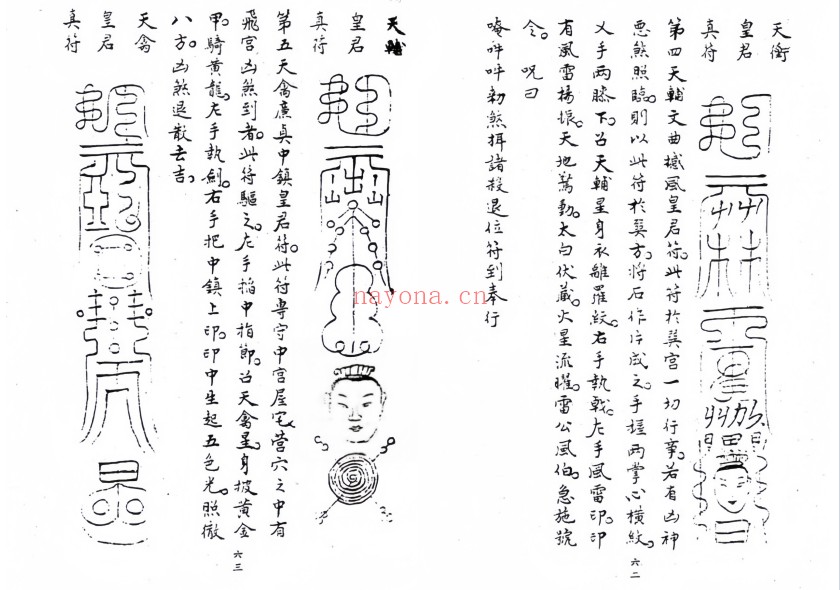 天衝
皇君
真符
第四天輔文曲撼風皇君符。此符於巽宮一切行事。若有凶神
惡煞照臨。則以此符於巽方。將石作片成之。手掐两掌心橫紋。
乂手两膝下。召天輔星身衣離羅紋。右手執戟。左手風雷印。印
有風雷揚振。天地驚動。太白伏藏。火星流曜。雷公風伯。急施號
令。咒曰
唵吽吽勅煞揖諸殺退位符到奉行
六二
天輔
皇君
真符
第五天禽廉貞中鎮皇君符。此符専守中宮屋宅。營穴之中有
飛宮凶煞到者。此符驅之。左手掐中指節。召天禽星。身披黄金
甲。騎黄龍。左手執劍。右手把中鎮上印。印中生起五色光。照徹
八方。凶煞退散去吉。
六三
天禽
皇君
真符
nayona.cn